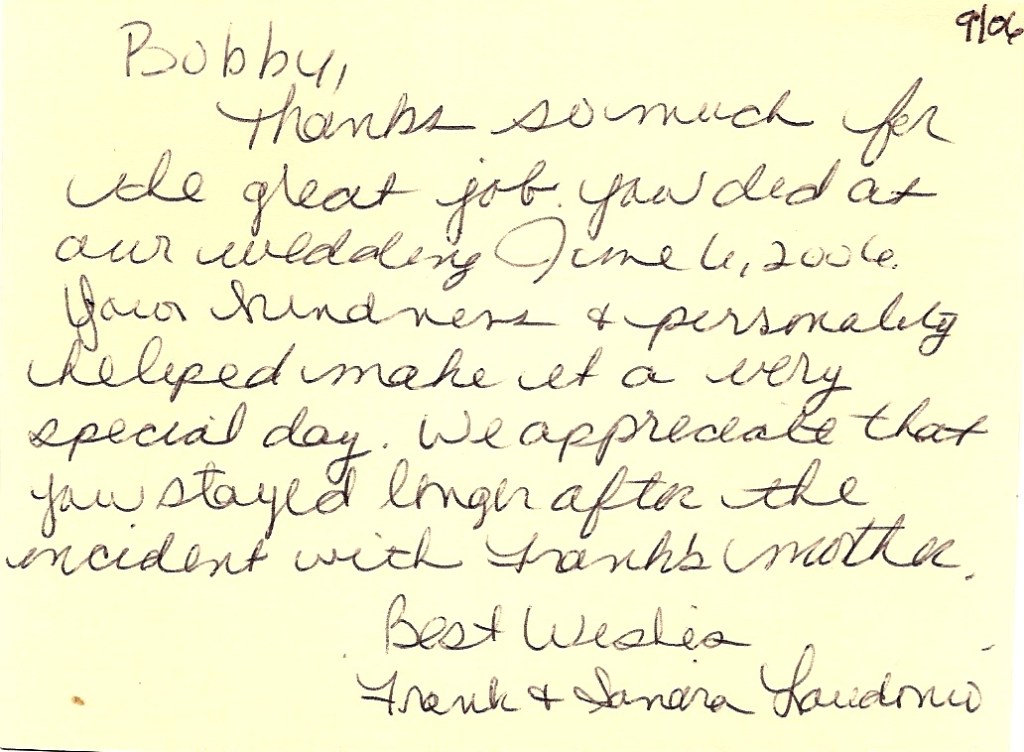 9/06
Bobby,
Thanks so much for
the great job you did at
our wedding June 6, 2006.
Your kindness & personality
helped make it a very
special day. We appreciate that
you stayed longer after the
incident with Frank's mother.
Best Wishes
Frank & Sandra